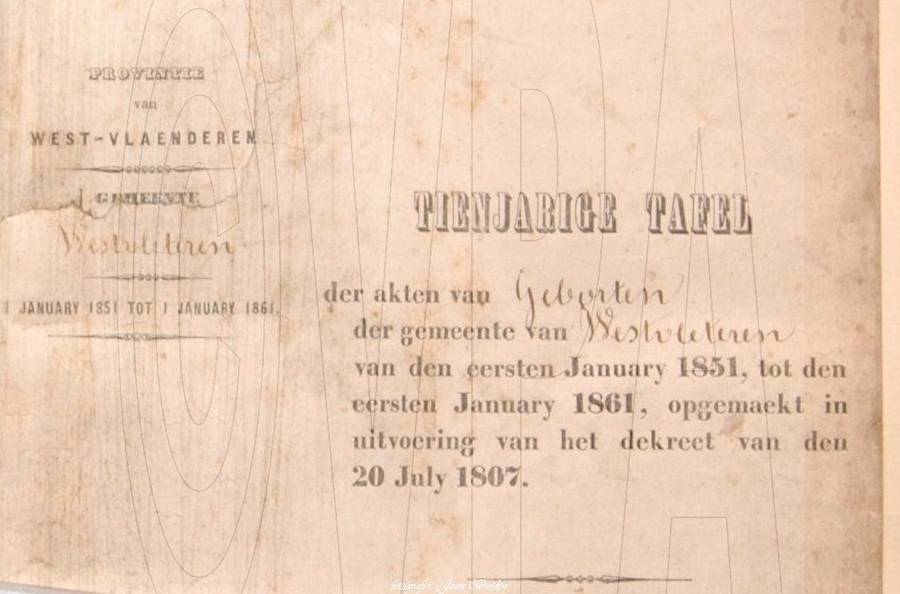 PROVINTIE
van
WEST-VLAENDEREN
GEMEENTE
Westvleteren
1 JANUARY 1851 TOT 1 JANUARY 1861.
TIENJARIGE TAFEL
der akten van Geborten
der gemeente van Westvleteren
van den eersten January 1851, tot den
eersten January 1861, opgemaekt in
uitvoering van het dekreet van den
20 July 1807.